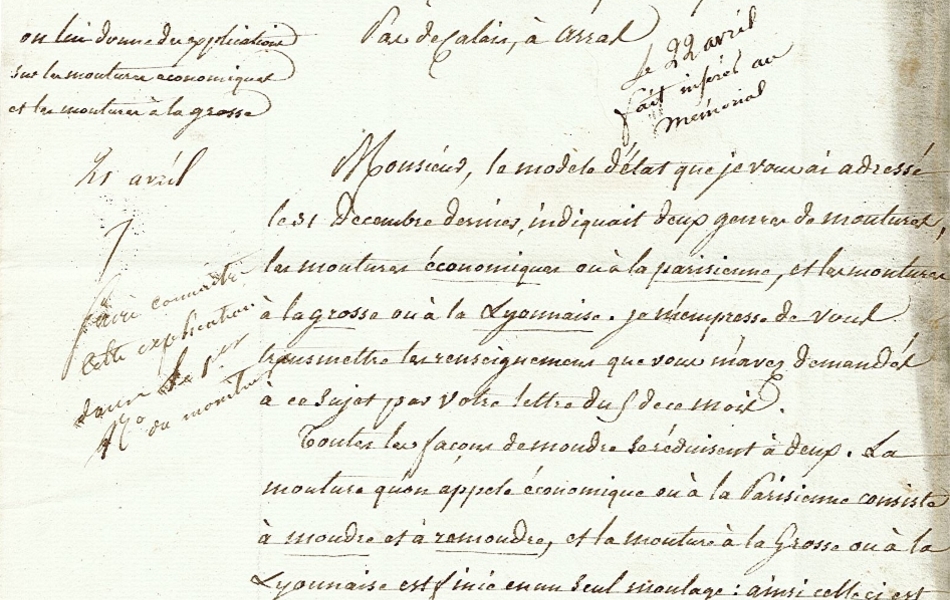 on lui donne des explications
sur les moutures economiques
et les moutures à la grosse
Pas de Calais, à Arras
le 22 avril
fait insérer au
Mémorial
21 avril
faire connaitre
cette explication
dans le 1er
No du
Monsieur, le modèle d'état que je vous ai adressé
le 31 Décembre dernier, indiquait deux genres de moutures,
les moutures économiques ou à la parisienne, et les moutures
à la grosse ou à la Lyonnaise. je m'empresse de vous
transmettre les renseignemens que vous m'avez demandés
à ce sujet par votre lettre du 5 de ce mois.
Toutes les façons de moudre se réduisent à deux. La
mouture qu'on appele économique ou à la Parisienne consiste
à moudre et à remoudre, et la mouture à la Grosse ou à la
Lyonnaise est finie en un seul moulage : ainsi celle ci est